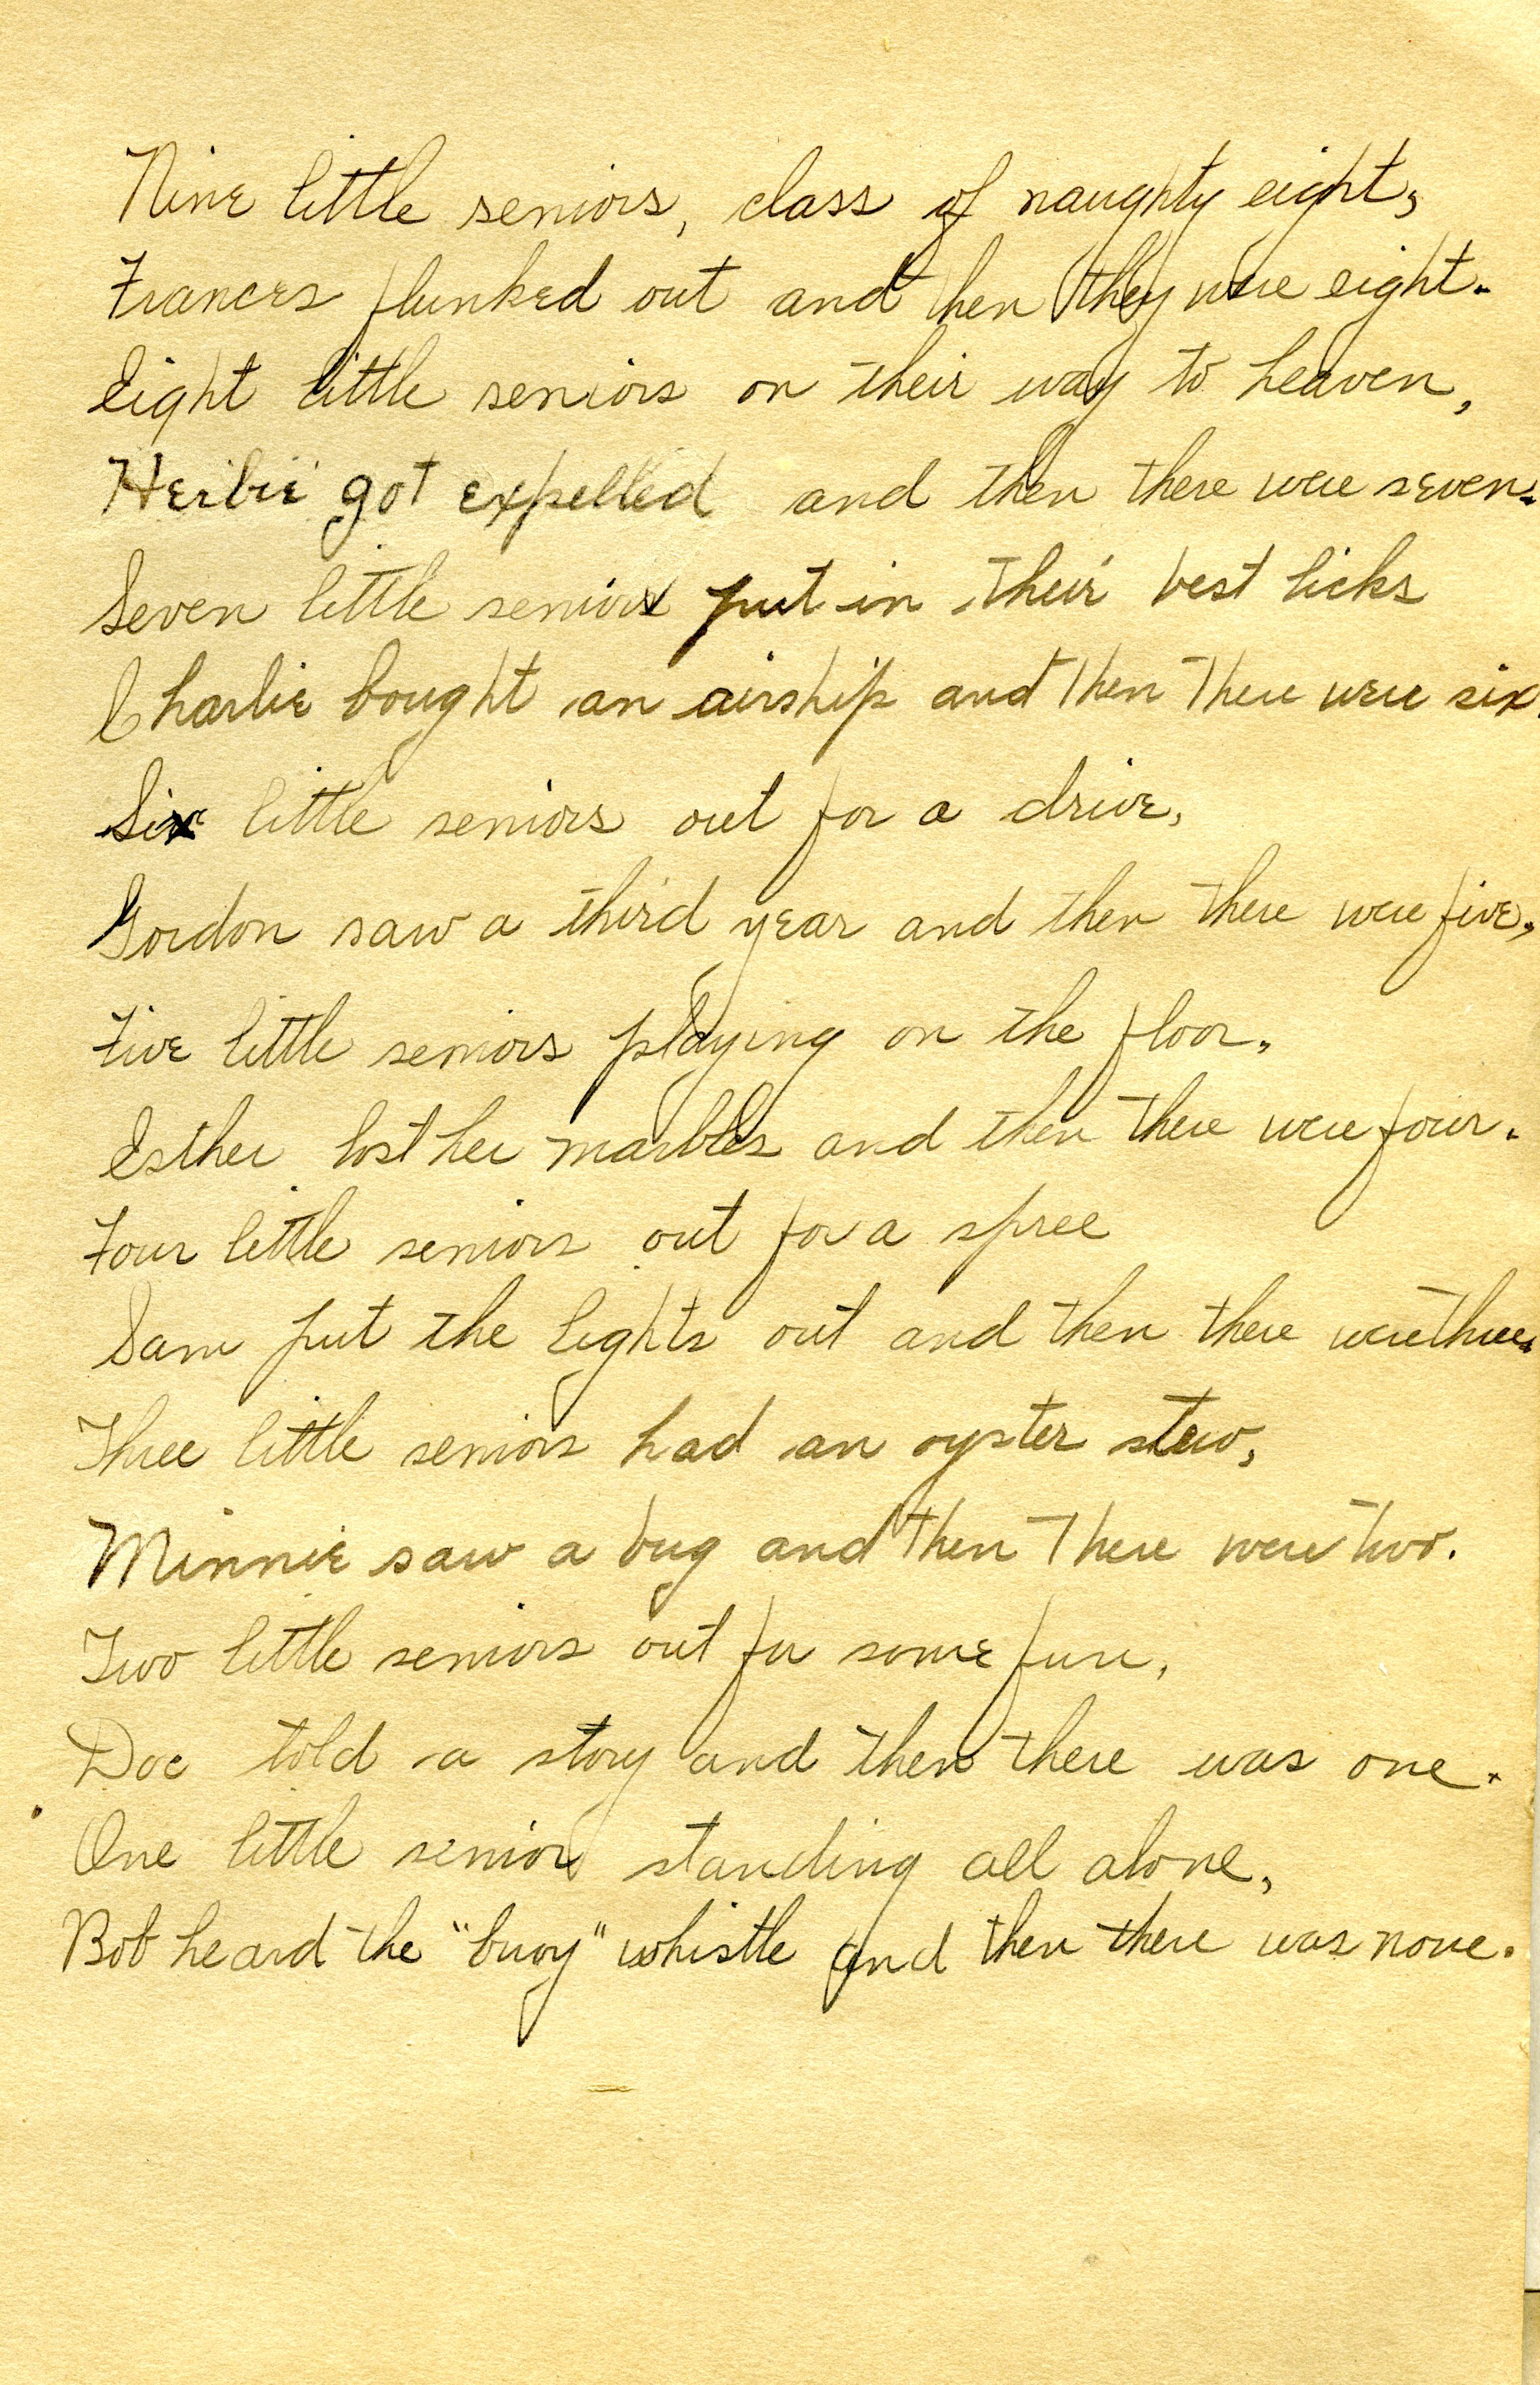 Nine little seniors, class of naughty eight,
Frances flunked out and then they were eight.
Eight little seniors on their way to heaven,
Herbie got expelled and then there were seven.
Seven little seniors put in their best licks
Charlie bought an airship and then there were six
Six little seniors out for a drive,
Gordon saw a third year and then there were five,
Five little seniors playing on the floor,
Esther lost her marbles and then there were four.
Four little seniors out for a spree
Sam put the lights out and then there were three.
Three little seniors had an oyster stew,
Minnie saw a bug and then there were two.
Two little seniors out for some fun,
Doc told a story and then there was one.
One little senior standing all alone,
Bob heard the "buoy" whistle and then there was none.